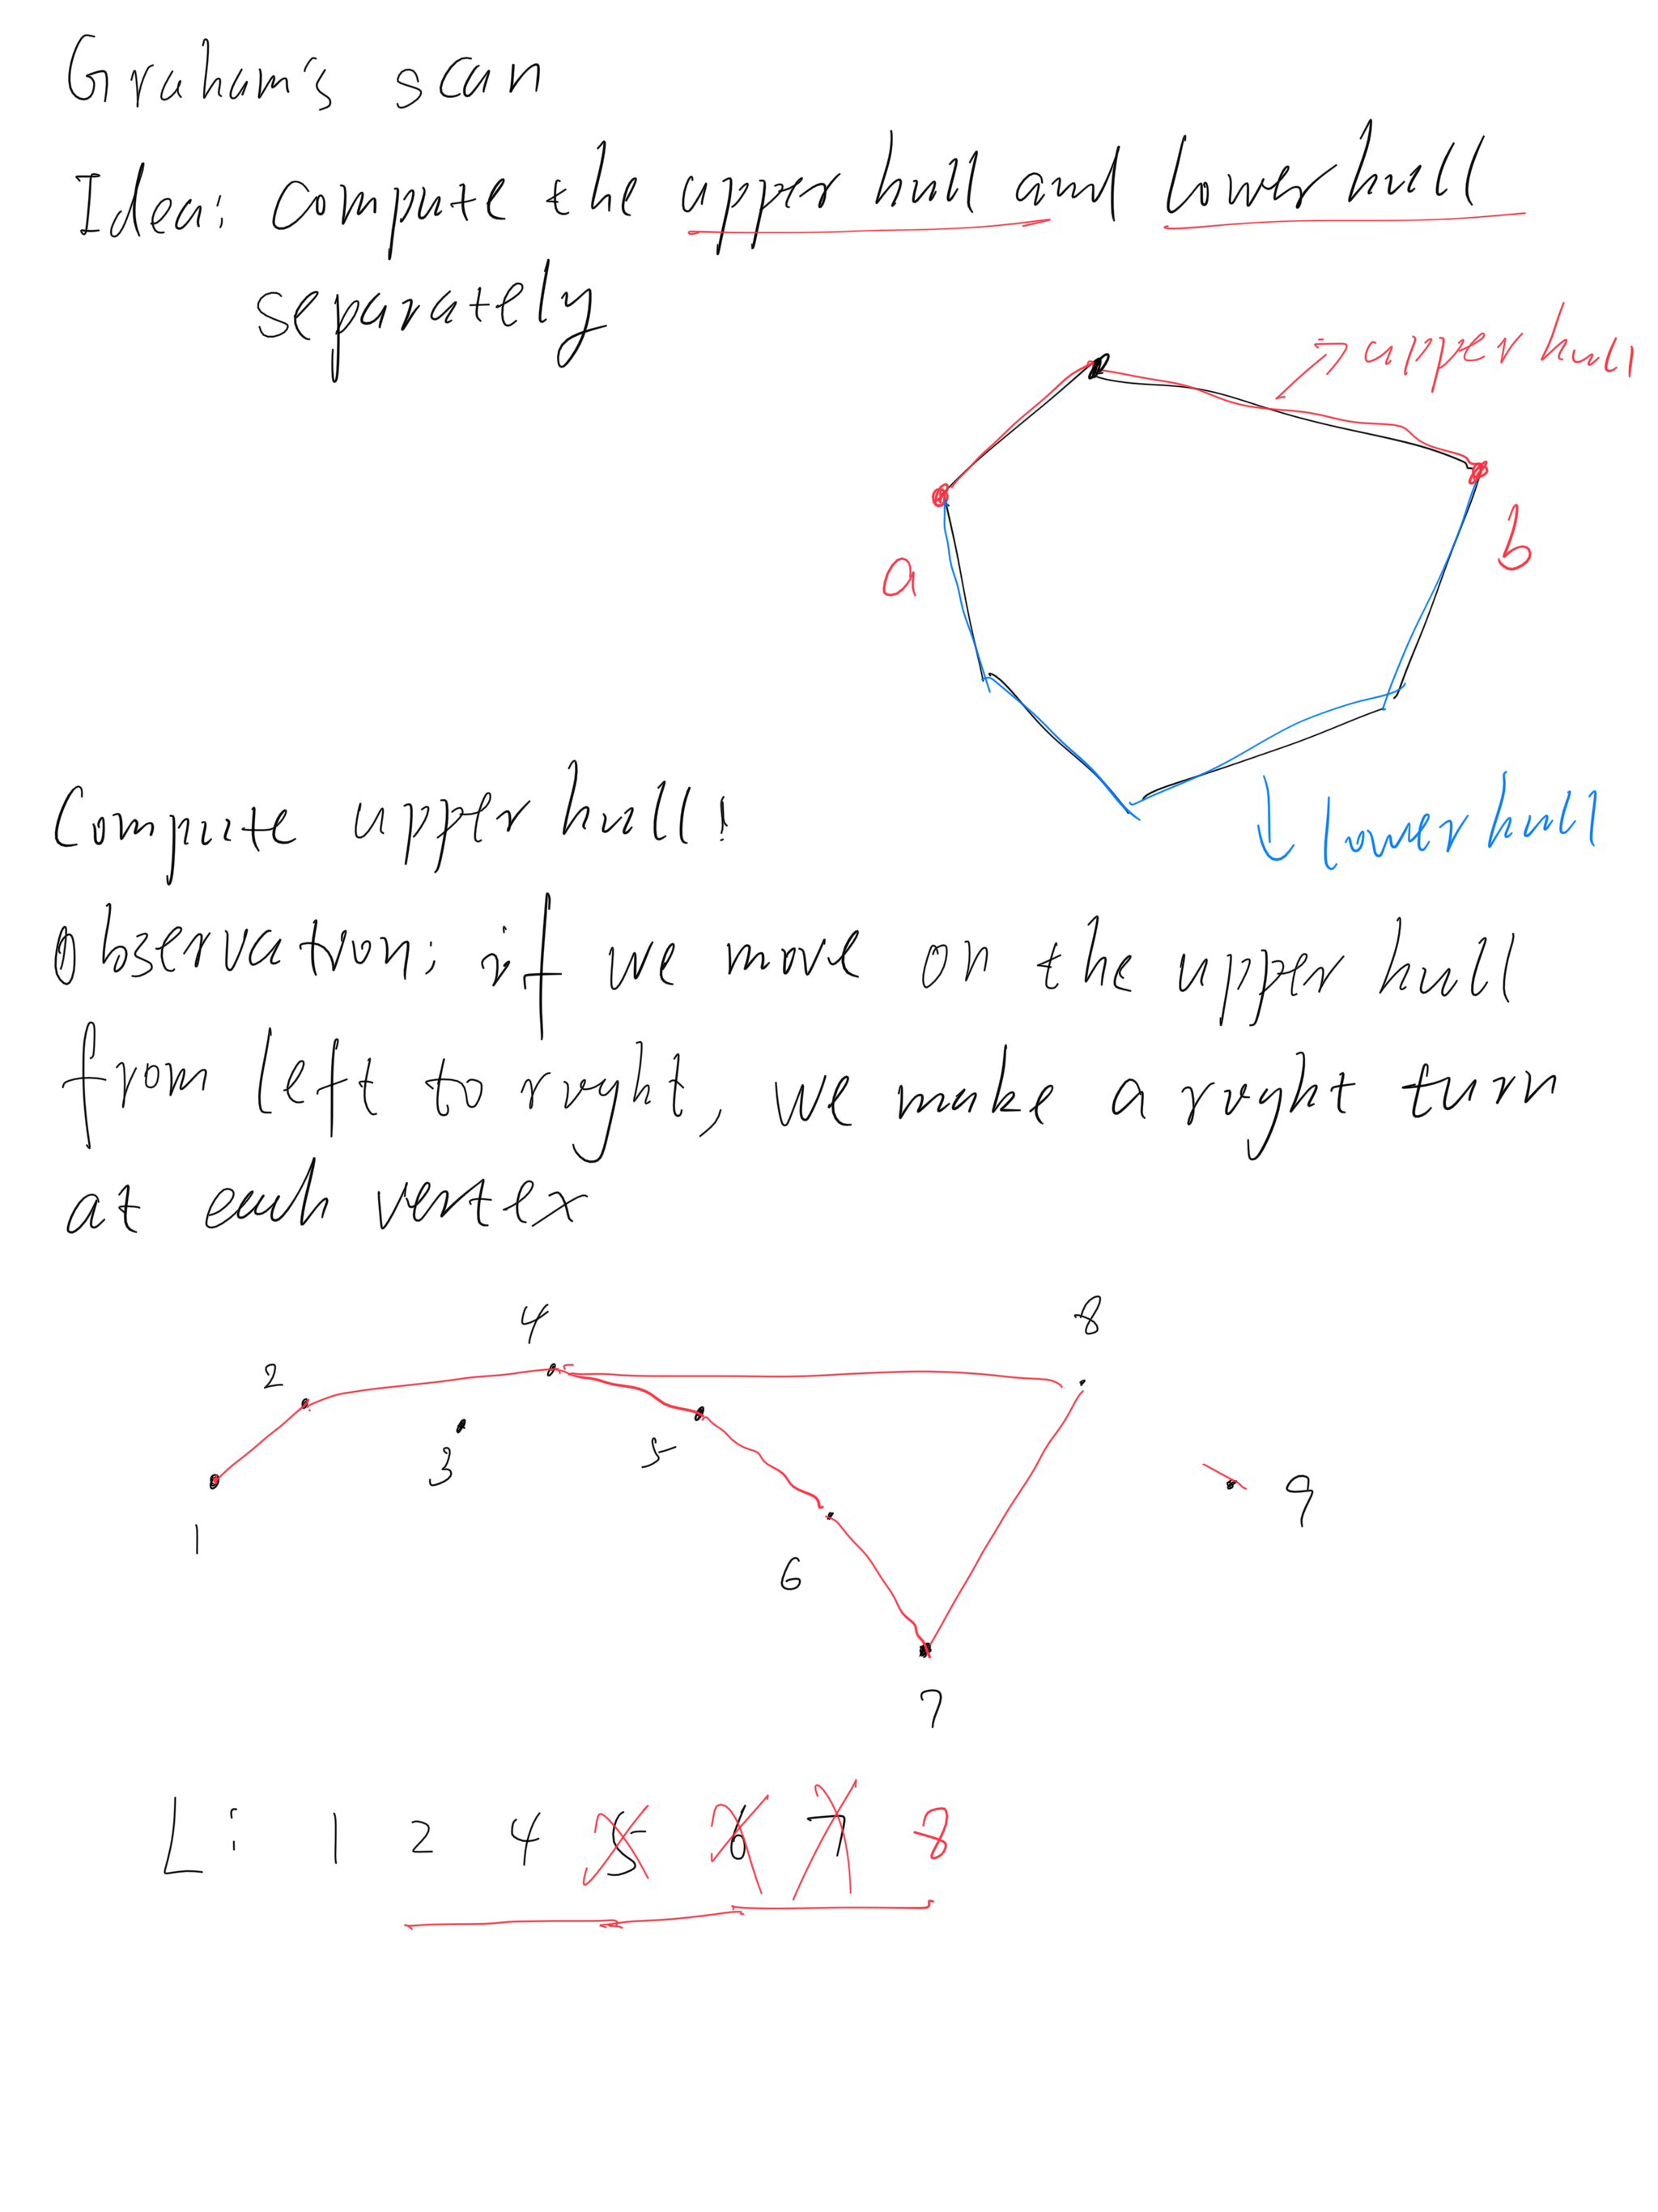 Graham's scan
Idea: compute the upper hull and lower hull
separately
upper hull
a
b
lower hull
Compute upper hull:
observation: if we move on the upper hull
from left to right, we make a right turn
at each vertex
4
8
2
3
5
1
9
6
7
L: 1 2 4 5 6 7 8